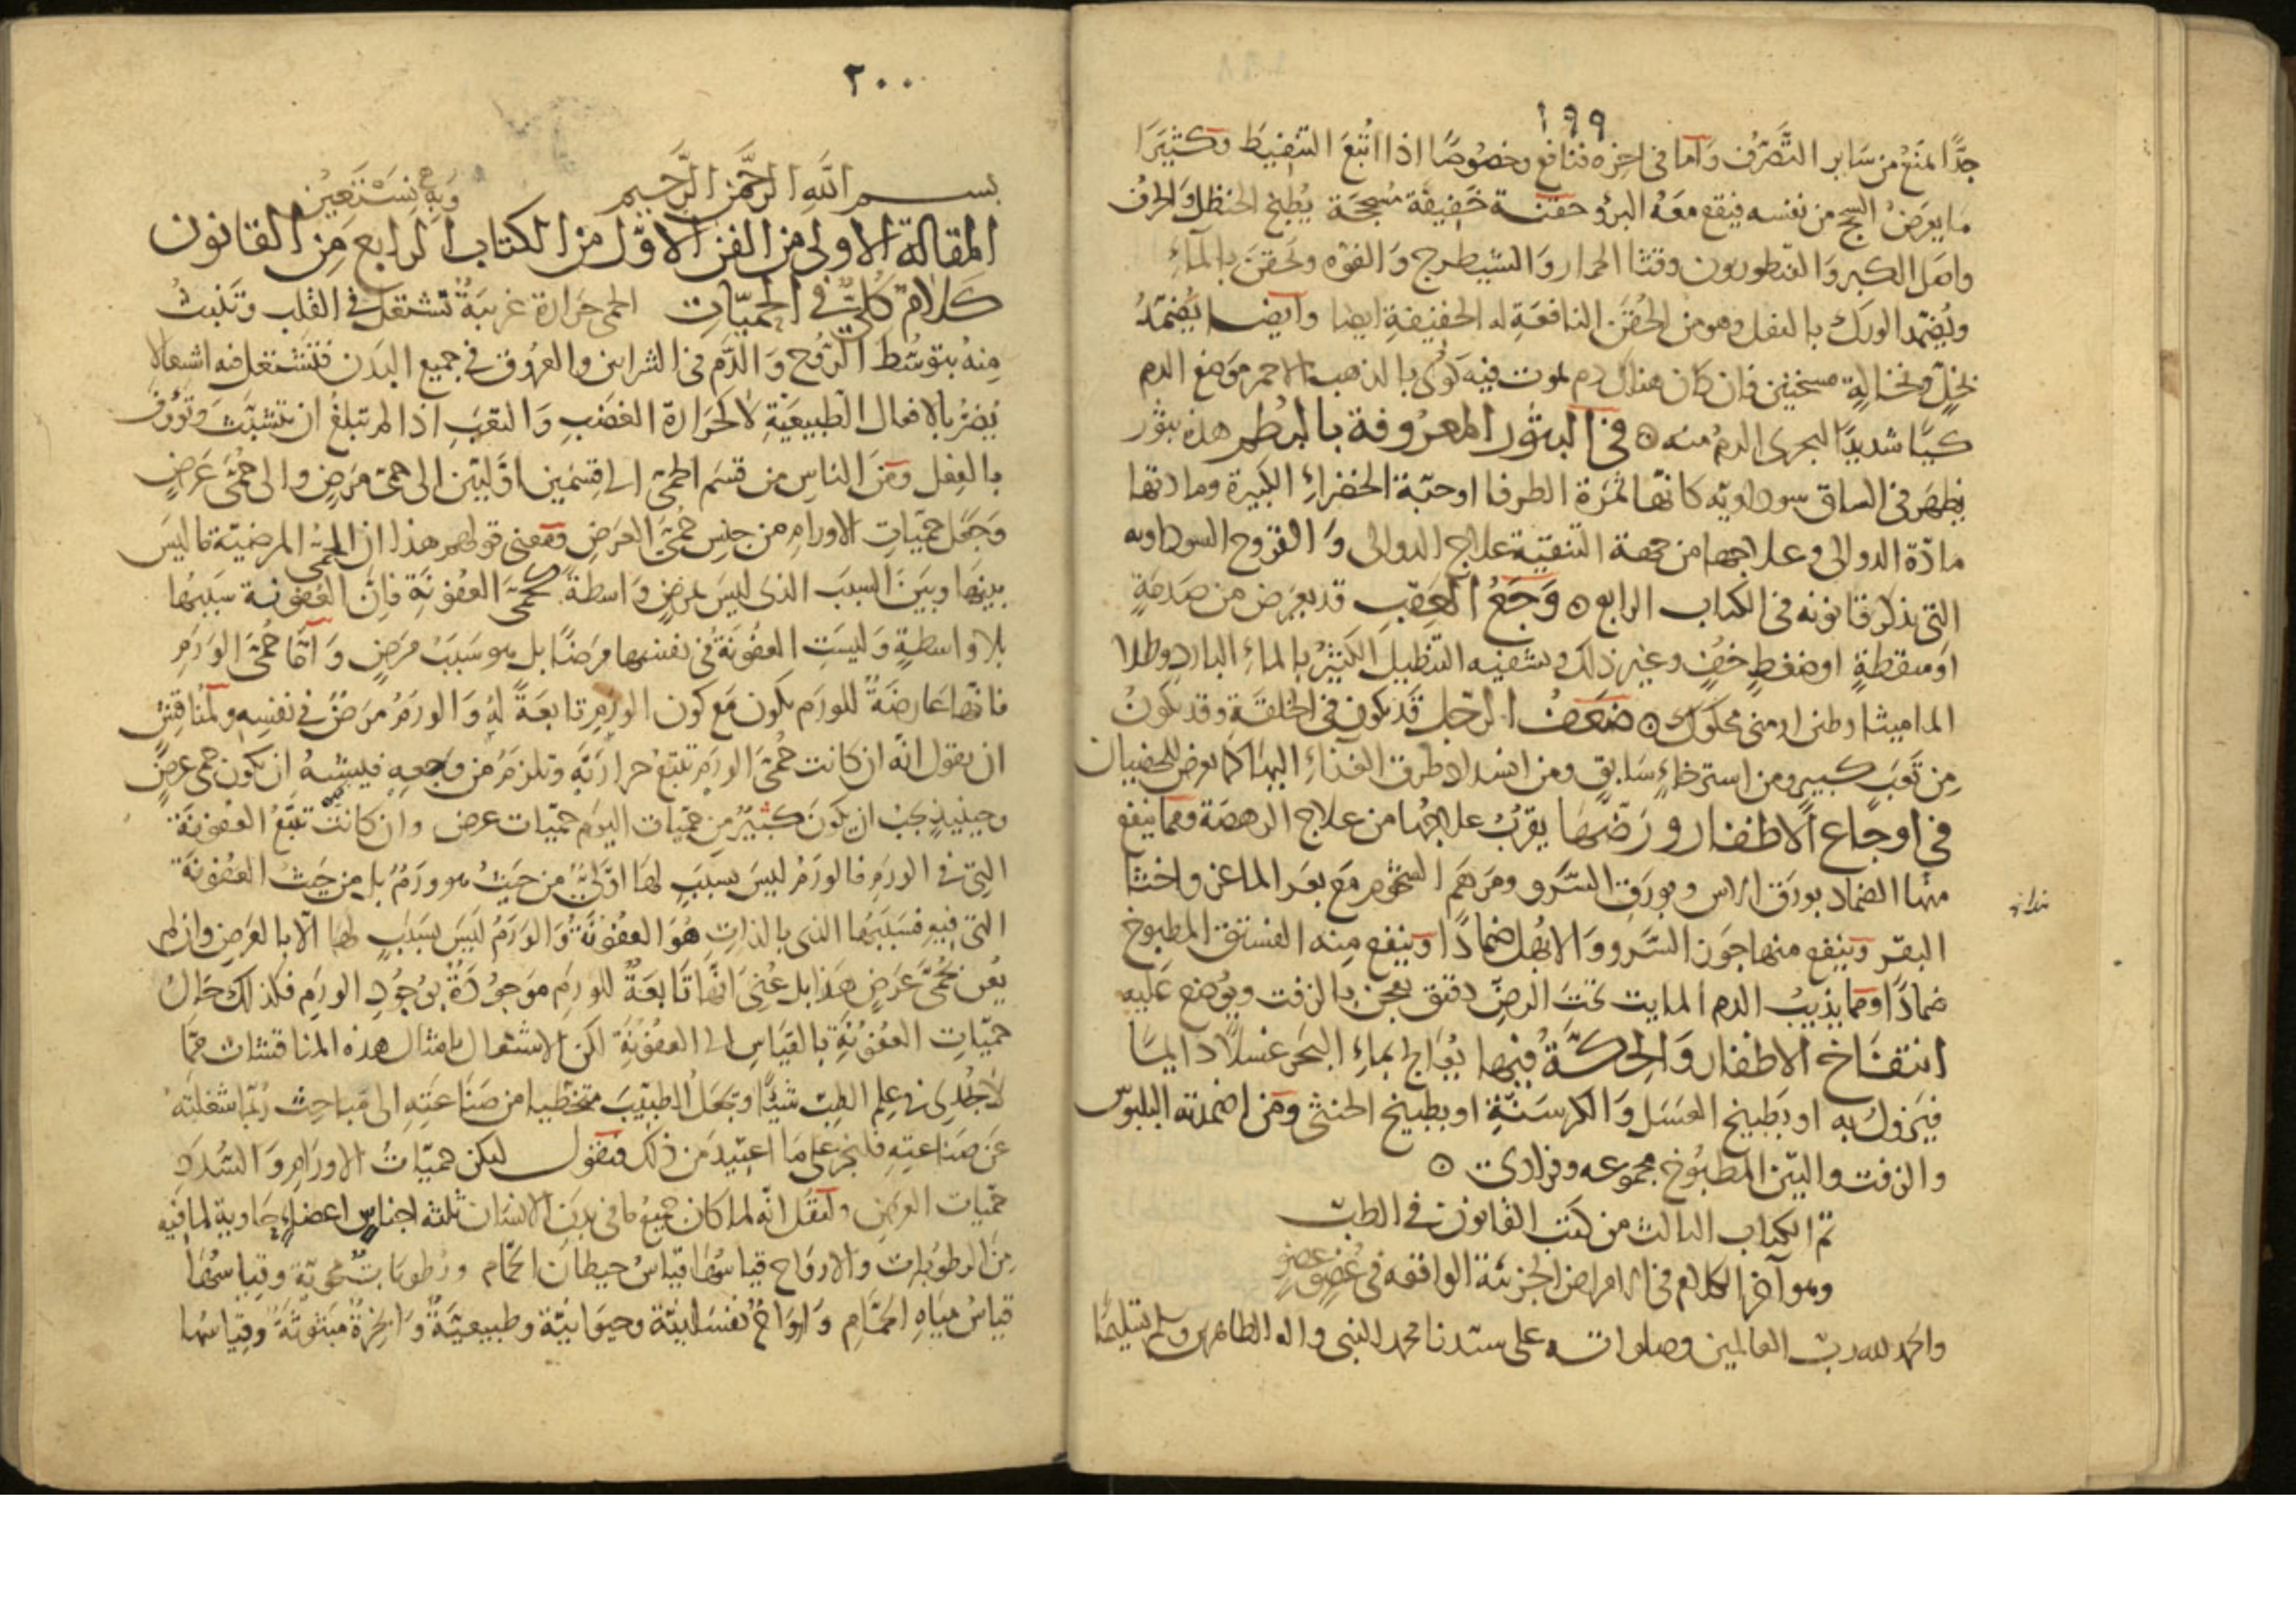 ١٩٩
جدًّا لمنع من سَاير التَّصَرّف وَاما فى اخره فنافع وخصُوصًا اذا اتبَعَ التنفيط وكثيرَا
ما يعرَضُ السحج من نفسه فيقع معَهُ البرؤ حقنة خفيفة مسحجة يُطبخ الحنظل وَالحرف
واصَل الكبر وَالقنطوريون وقثا الحمار وَالشيطرج وَالفوّه وتحقنَ بالماءِ
ويُضمّد الورك بالثفل وهو من الحُقَن النافعَةِ له الحفيفةِ ايضا وايضا يُضمّدُ
بخلٍّ ونخالةٍ مسخنين فان كان هناك دم يموت فيه كوى بالذهب الاحمر موَضع الدم
كيًّا شديدًا ليجرى الدمُ منه ۞ فى البثور المعرُوفة بالبُطم هذه بثور
يظهَر فى الساق سوداويّه كانّها ثمرَة الطرفا او حبّة الخضراءِ الكبيرة ومادتها
مادّة الدوالى وعلاجها من جهة التنقيَة علاج الدوالى وَالقروح السوداويه
التى نذكر قانونه فى الكتاب الرابع ۞ وَجَعُ العَقِب قد يعرَض من صَدمَةٍ
او سقطةٍ او ضغطِ خفٍ وغير ذلك ويشفيه التنطيل الكثيرُ بالماءِ البارد وطلا
الماميثا وطين ارمنى محكوك ۞ ضعَفُ الرّجل قَد يكون فى الخلقَة وقد يكونُ
مِن تَعَبَ كبيرٍ ومن استرخاءٍ سَابقٍ ومن انسداد طرق الغذاءِ اليها كما يعرض للخصيان
فى اوجَاع الاظفار ورَضّها يقربُ علاجُها من علاج الرهصَة ومما ينفع
منها الضماد بورَق الاس وبورَق السّرو ومرهَم الشحوم مَع بعَر الماعز واخثا
البقر وينفع منها جوَز السَّرو وَالابهل ضمادًا وينفع مِنه الفستق المطبوخ
ضمادًا ومما يذيبُ الدم المايت تحَتَ الرضّ دقيق يعجن بالزفت ويوُضع عَليه
انتفَاخ الاظفار وَالحكّةُ فيها يُعَالج بماءِ البحَر غسلًا دَايمًا
فيَزول به او بَطبيخ العسَل وَالكرسَنّةِ او بطبيخ الخنثى ومن اضمدته البلبوس
والزفت والتين المطبُوخ مجموعه وفرادى ۞
تمّ الكتاب الثالث من كتب القانون فى الطب
وهو آخر الكلام فى الامراض الجزئية الواقعه فى عُضوٍ عضوٍ
والحمد لله رب العالمين وصلواته على سيّدنا محمد النبى واله الطاهرين وسلم تسليمًا
٢٠٠
بسم اللّهِ الرحمَن الرَّحيم وَبِهِ نَسْتَعِيْن
المقالة الاولى من الفن الاوّل من الكتاب الرابع مِن القانون
كلامٌ كُلّىٌ فى الحمّيَّاتِ الحمى حرَارة غريبَةٌ تشتعل فى القلب وتَنبثُ
مِنهُ بتوسُّط الرّوُح وَالدَّم فى الشرايين والعروق فى جميع البَدَن فتشتعل فيه اشتعالا
يُضرُ بالافعال الطّبيعيَةِ لا كحَرَارة الغضَبِ وَالتعَبِ اذا لم تبلغ ان تتشبّثَ وتؤوف
بالفِعل ومنَ الناسِ من قسَم الحمّى الى قسِمَين اوّليّين الى حمّى مرَضٍ والى حُمّى عَرَضٍ
وَجَعَل حميّاتِ الاورامِ من جنِس حُمّى العَرضِ ومَعنى قولهم هذا ان الحمّى المرضيّة ما ليسَ
بينهَا وبيَن السببَ الذى ليَسَ بمَرضٍ وَاسطة كحمّى العفُونةِ فاِنّ العُفونة سَببُها
بلا واسطةٍ وَليسَتِ العفُونَةُ فى نفسِها مرَضًا بل هو سَببُ مرَضٍ وَامّا حُمّى الورَمِ
فانّها عَارضَةٌ للورَم يكَون مَع كون الورَمِ تابعَةً لهُ وَالورَمُ مرَضٌ فى نفسِه ولمُناقِشٍ
ان يقول انّه ان كانت حُمّى الورَمِ تتبَعُ حرارَتَهِ وتلزمُ من وَجعِهِ فيشبهُ ان تكون حمّى عرضٍ
وحينيذٍ يجبُ ان يكونَ كثيرٌ مِن حمّيَات اليوم حمّيَات عرض وان كانت تتبَّعُ العفُونَةَ
التى فى الورَمِ فالورَمُ ليَسَ بسَببٍ لهَا اوّلىٍّ من حَيَثُ هو ورَمٌ بل من حَيثُ العفُونَة
التى فيهِ فسَببهَا الذى بالذاتِ هُوَ العفُونَةُ وَالوَرَمُ ليَسَ بسَبَبٍ لهَا الّا بالعَرضِ وان لم
يُعن بحُمّى عَرَضٍ هَذا بل عُنِىَ انّهَا تَابعَةٌ للورَمِ موَجوُدَةٌ بوُجوُدِ الورَمِ فكذلك حَالُ
حميّاتِ العفُونَةِ بالقيَاسِ الى العفُونَةِ لكن الاشتغال بامثال هذه المناقشات ممّا
لا يجُدِى فى علِم الطِبّ شيًا وَيجعَلُ الطبيَب متخطّيا من صَنَاعَتِهِ الى مباحِث رُبّما شغلته
عَن صَناعتِهِ فلنجرِ عَلى مَا اعتيدَ من ذلك فنقول لتكن حميّاتُ الاورَامِ وَالسُدَدِ
حمّيَات العرَضِ ولنقُل انّه لما كان جَميعُ ما فى بدَن الانسَان ثلثة اجناسٍ اعضاءٍ حَاوية لما فيه
مِنَ الرطوبَاتِ وَالارواح قياسُهَا قياسُ حيطان الحمّام ورُطوبَات محويّة وقياسُهَا
قياسُ ميَاهِ الحمَّامِ وَارواحٌ نفسَانيّة وحيوانيّة وطبيعيّةٌ وَابخرةٌ مبثوثةٌ وقياسُها